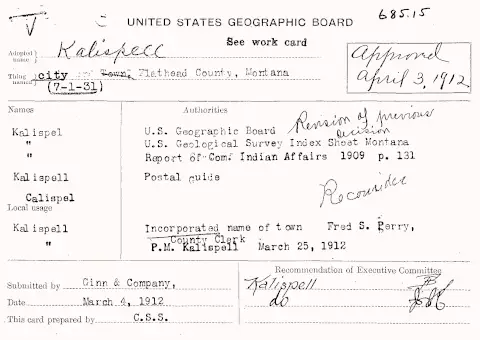 UNITED STATES GEOGRAPHIC BOARD
685.15
See work card
Adopted name } Kalispell
Approved
April 3, 1912
Thing named } city or Town, Flathead County, Montana
(7-1-31)
Names
Authorities
Revision of previous decision
Kalispel U.S. Geographic Board
" U.S. Geological Survey Index Sheet Montana
" Report of Com. Indian Affairs 1909 p. 131
Kalispell Postal guide
Reconsider
Calispel
Local usage
Kalispell Incorporated name of town Fred S. Perry,
County Clerk
" P.M. Kalispell March 25, 1912
Recommendation of Executive Committee
Submitted by Ginn & Company,
Kalispell
do
Date March 4, 1912
This card prepared by C.S.S.